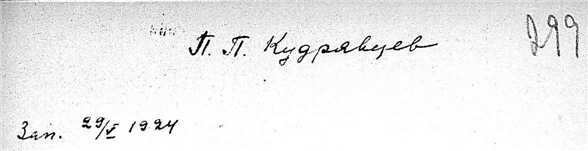 299
П. П. Кудрявцев
Зап. 29/V 1924